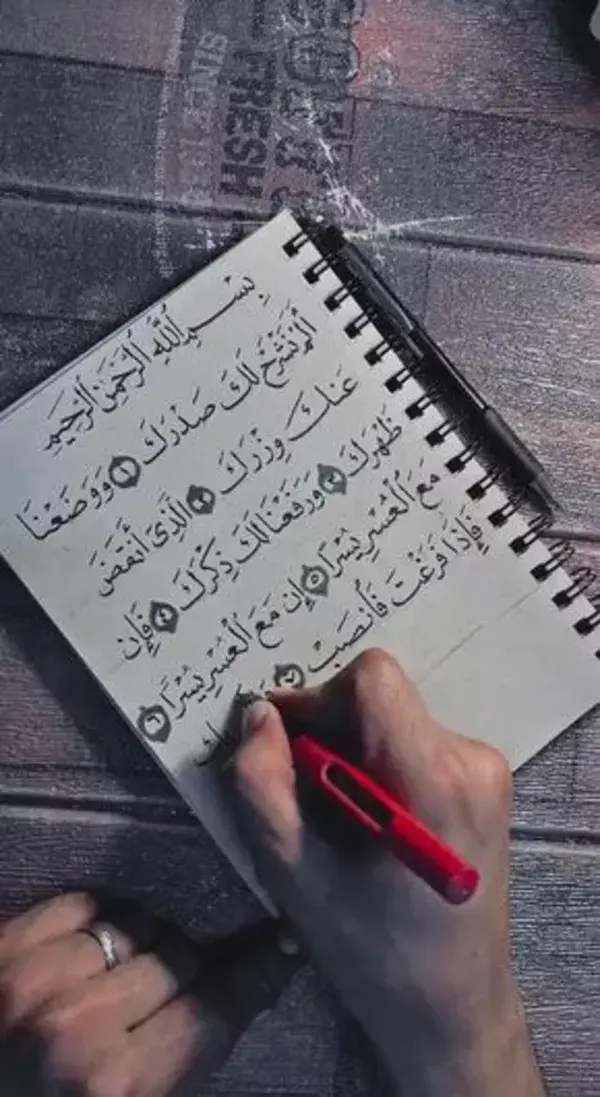 FRESH
بِسْمِ اللَّهِ الرَّحْمَنِ الرَّحِيمِ
أَلَمْ نَشْرَحْ لَكَ صَدْرَكَ ١ وَوَضَعْنَا
عَنكَ وِزْرَكَ ٢ الَّذِى أَنقَضَ
ظَهْرَكَ ٣ وَرَفَعْنَا لَكَ ذِكْرَكَ ٤ فَإِن
مَعَ الْعُسْرِ يُسْرًا ٥ إِن مَعَ الْعُسْرِ يُسْرًا ٦
فَإِذَا فَرَغْتَ فَانصَبْ ٧